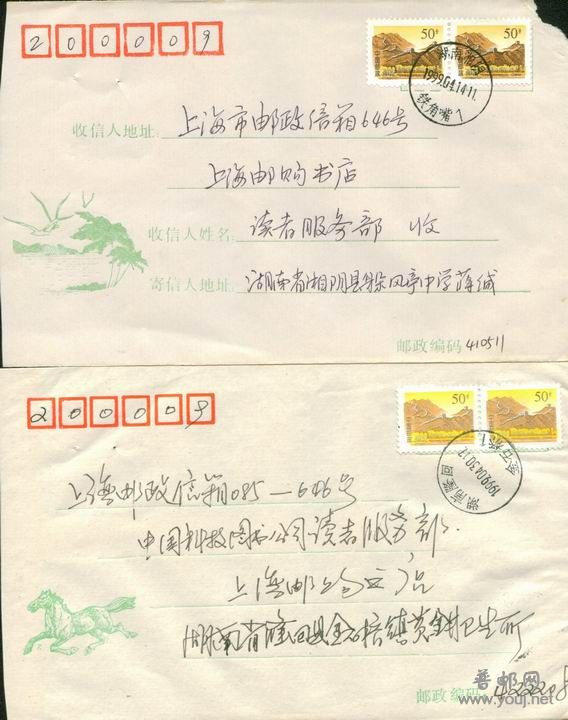 200009
50分 50分
湖南湘阴
1999.04.14.11
铁角嘴 1
收信人地址: 上海市邮政信箱646号
上海邮购书店
收信人姓名: 读者服务部 收
寄信人地址: 湖南省湘阴县躲风亭中学蒋斌
邮政编码 410511
200009
50分 50分
湖南隆回
1999.04.30.17
金石桥 1
上海邮政信箱085—646号
中国科技图书公司读者服务部
上海邮
湖南省隆回县金石桥镇黄金村卫生所
邮政编码 422208
普邮网
www.youj.net